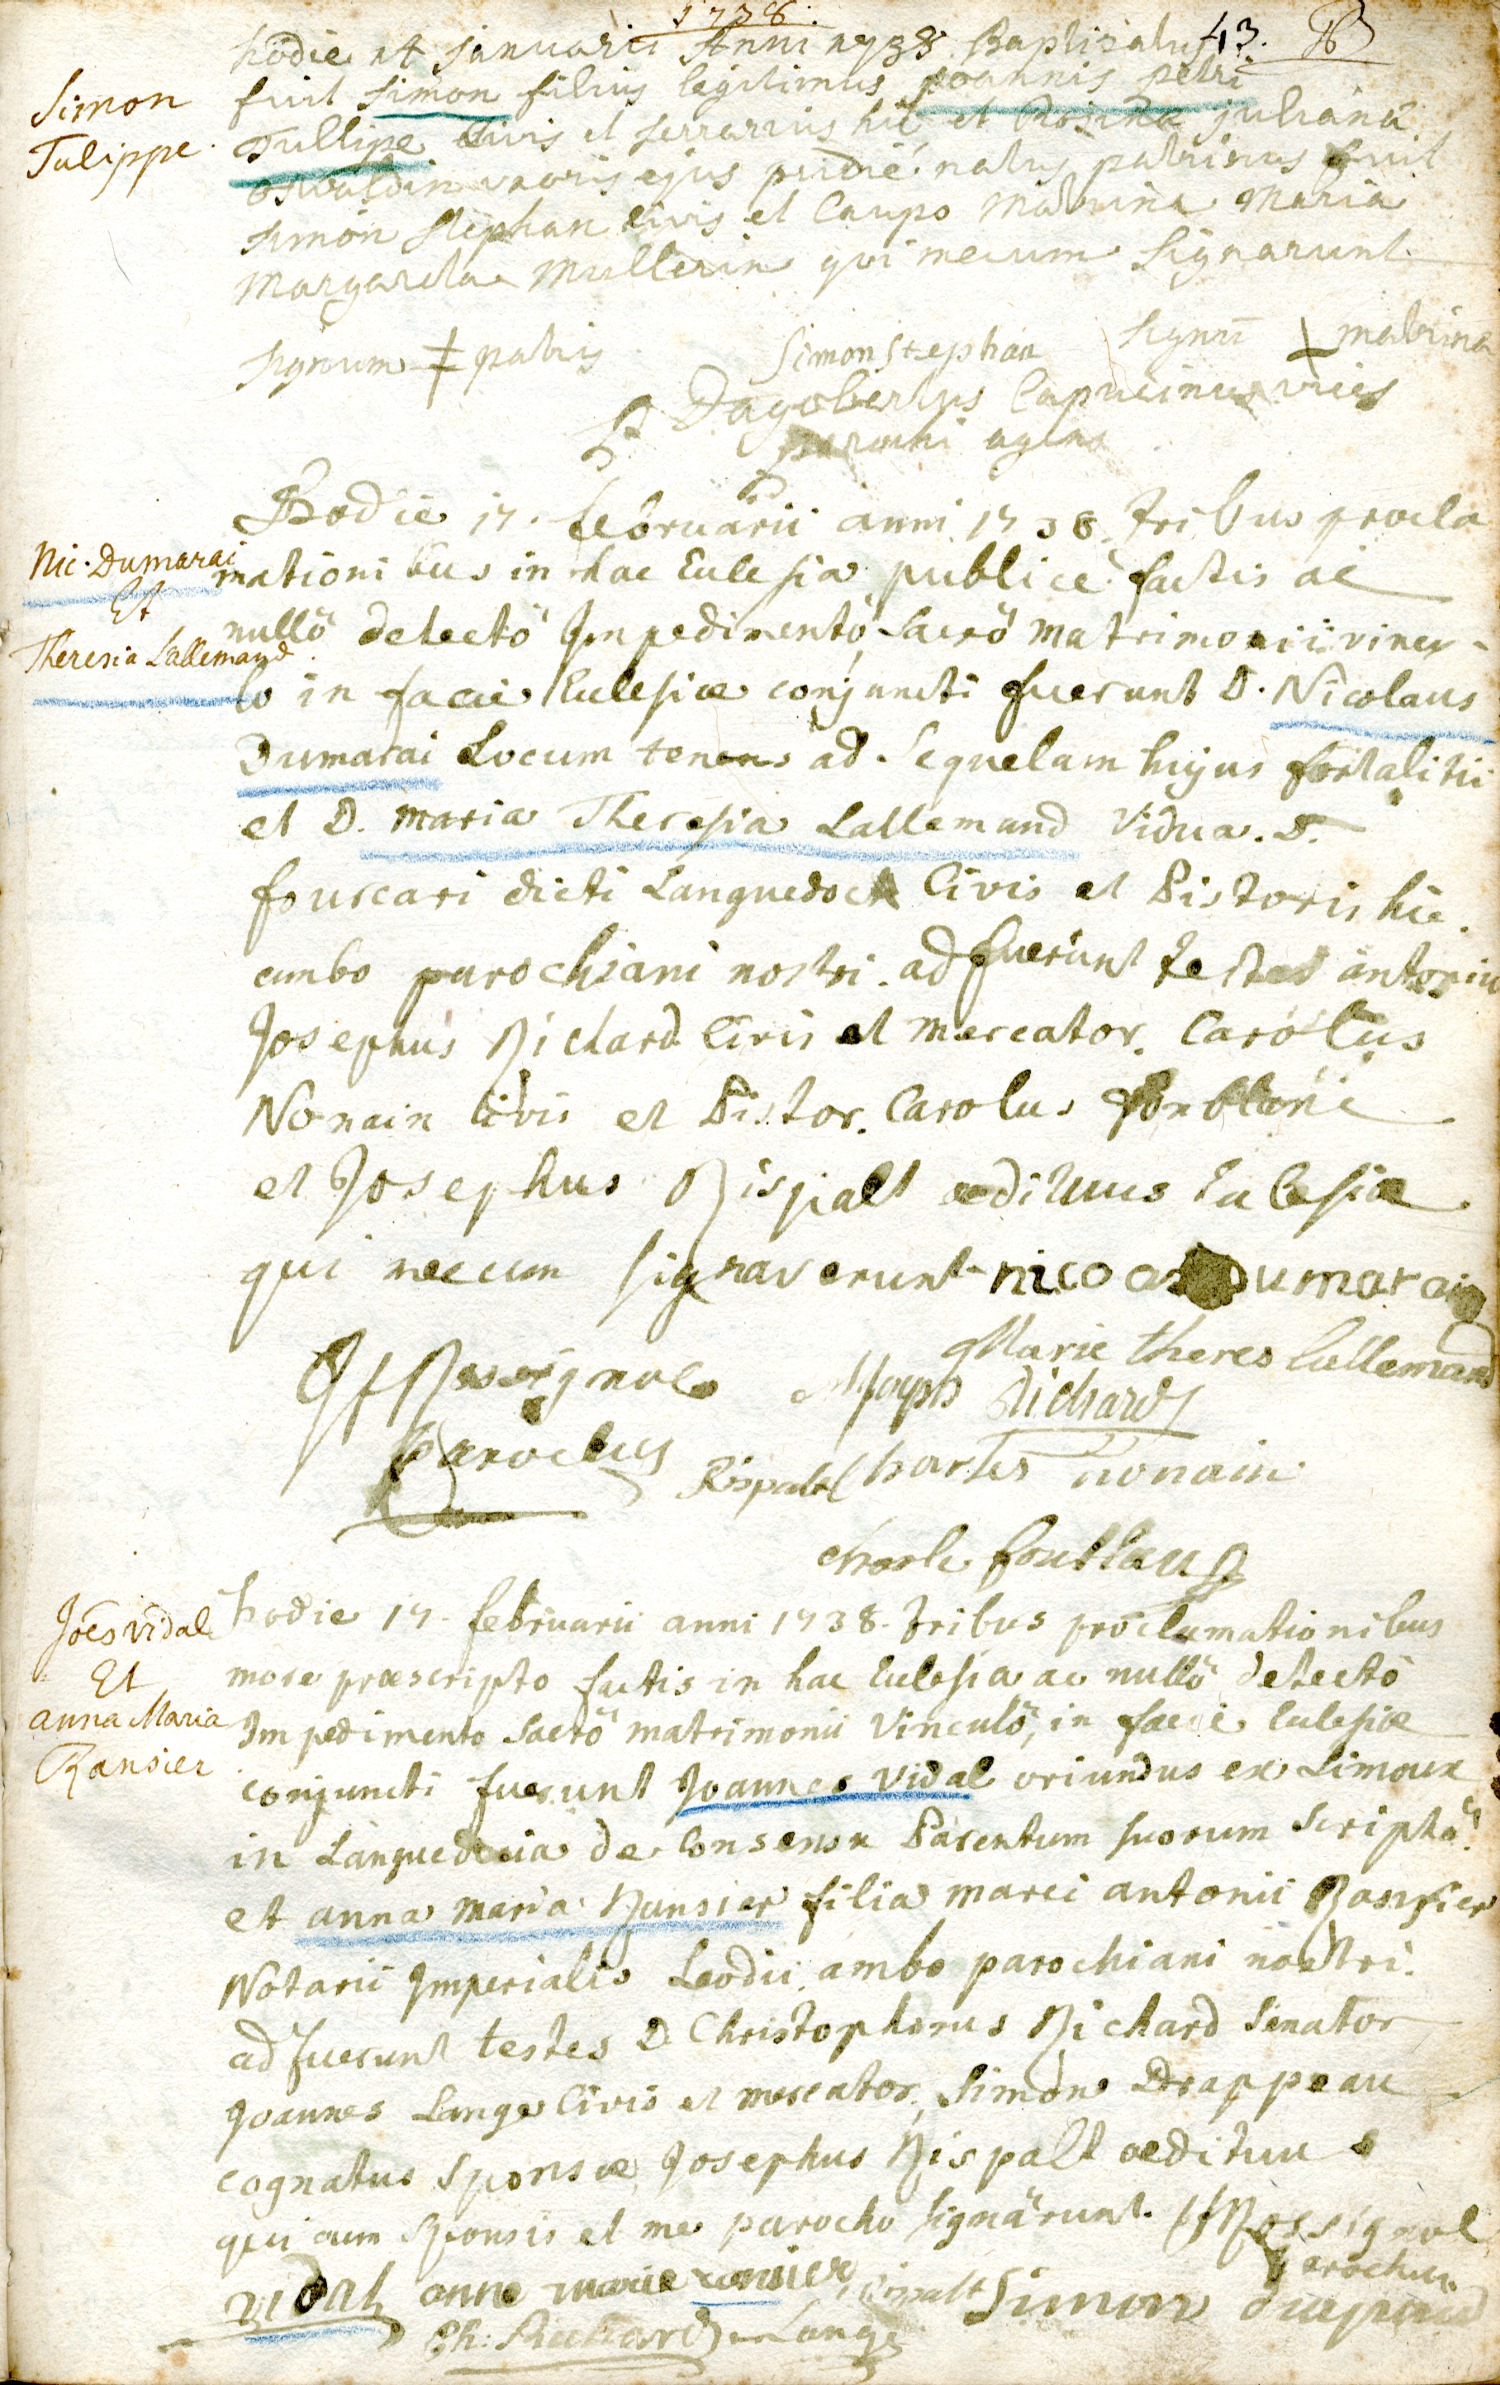 1738.
43.
hodie 14 januarii Anni 1738 Baptisatus
fuit Simon filius legitimus joannis petri
Tullipe Civis et serrarius hic et Rosinae juliana
oswaldin uxoris ejus pridie natus patrinus fuit
simon stephan civis et Caupo Matrina Maria
Margareta Mullerin qui mecum Signarunt
Simon
Tulippe.
signum ‡ patris Simon Stephan signū + matrina
P Dagobertus Capucinus vices
parochi agens
Hodie 17. februarii anni 1738. tribus procla
mationibus in hac Eclesia publicè factis ac
nullō detectō Impedimentō, Sacrō Matrimonii vincu-
lo in facie Eclesiæ conjuncti fuerunt D. Nicolaus
Dumarai Locum tenens ad Sequelam hujus fortalitii
et D. Maria Theresia Lallemand Vidua. D.
fouscari dicti Languedock Civis et Pistoris hic.
ambo parochiani nostri. adfuerunt testes antoniu
Josephus Richard Civis et Mercator. Carolus
Nonain Civis et Pistor. Carolus fonblanc
et Josephus Rispalt ædituus Eclesiæ
qui mecum signaverunt nicoas Dumarai
Nic. Dumarai
Et
Theresia Lallemand.
Marie theres lallemand
JfRossignol Joseph Richard
Parochus Rispalt Charles nonain
Charle fonblanc
hodie 17. februarii anni 1738. tribus proclamationibus
more præscripto factis in hac Eclesia ac nullō detectō
Impedimento Sacrō matrimonii Vinculō, in facie Eclesiæ
conjuncti fuerunt Joannes Vidal oriundus ex Limoux
in Languedocia de Consensu Parentum suorum scriptō.
et anna maria Ransier filia marci antonii Ransier
Notarii Imperialis Leodii. ambo parochiani nostri.
adfuerunt testes D Christophorus Richard Senator
Joannes Lange Civis et mercator, Simon Drappeau
cognatus Sponsæ Josephus Rispalt ædituus
qui cum Sponsis et me parocho signārunt. JfRossignol
Parochus
Joēs vidal
Et
anna Maria
Ransier
vidal anne marie ransier Rispalt Simon drapeau
Ch: Richard Lange